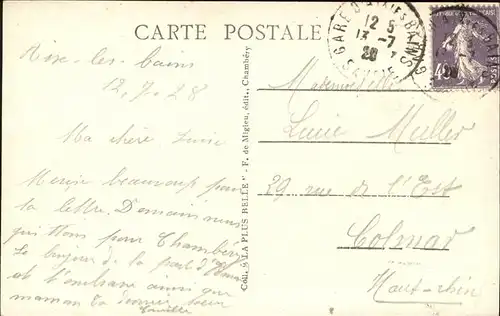 CARTE POSTALE
Aix-les-bains
12.7.28
Ma chère Lucie
Merci beaucoup pour
ta lettre. Demain nous
quittons pour Chambéry
Le bijou de la part d'
et t'embrasse ainsi que
maman Ta
Coll. "LA PLUS BELLE" - F. de Migieu, édit., Chambéry
GARE D'AIX LES BAINS
12 5
13 - 7
28
SAVOIE
40
Mademoiselle
Lucie Muller
29 rue de l'Est
Colmar
Haut-rhin